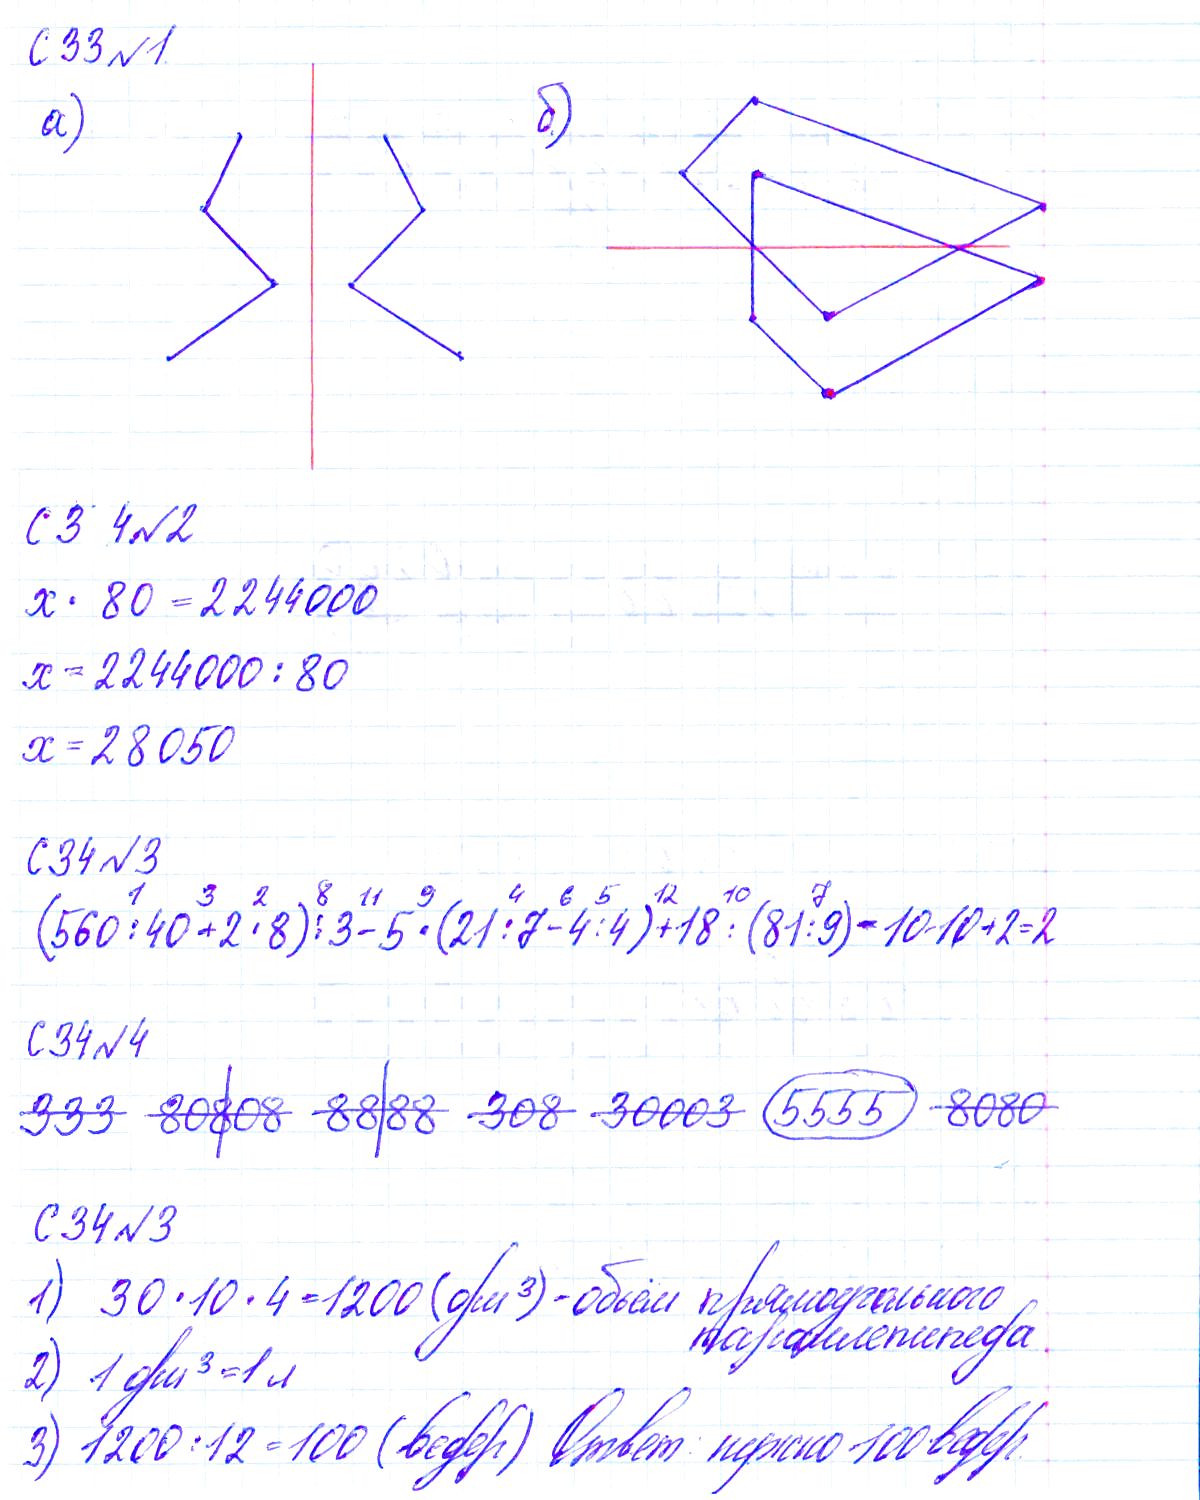 С 33 №1
а)
б)
С 3 4 №2
х · 80 = 2244000
х = 2244000 : 80
х = 28050
С 34 №3
1 3 2 8 11 9 4 6 5 12 10 7
(560:40+2·8):3-5·(21:7-4:4)+18:(81:9)=10-10+2=2
С 34 №4
333 80808 8888 308 30003 5555 8080
С 34 №3
1) 30·10·4=1200 (дм³) - объём прямоугольного
параллепипеда
2) 1 дм³ = 1 л
3) 1200:12=100 (ведер) Ответ: нужно 100 ведер.